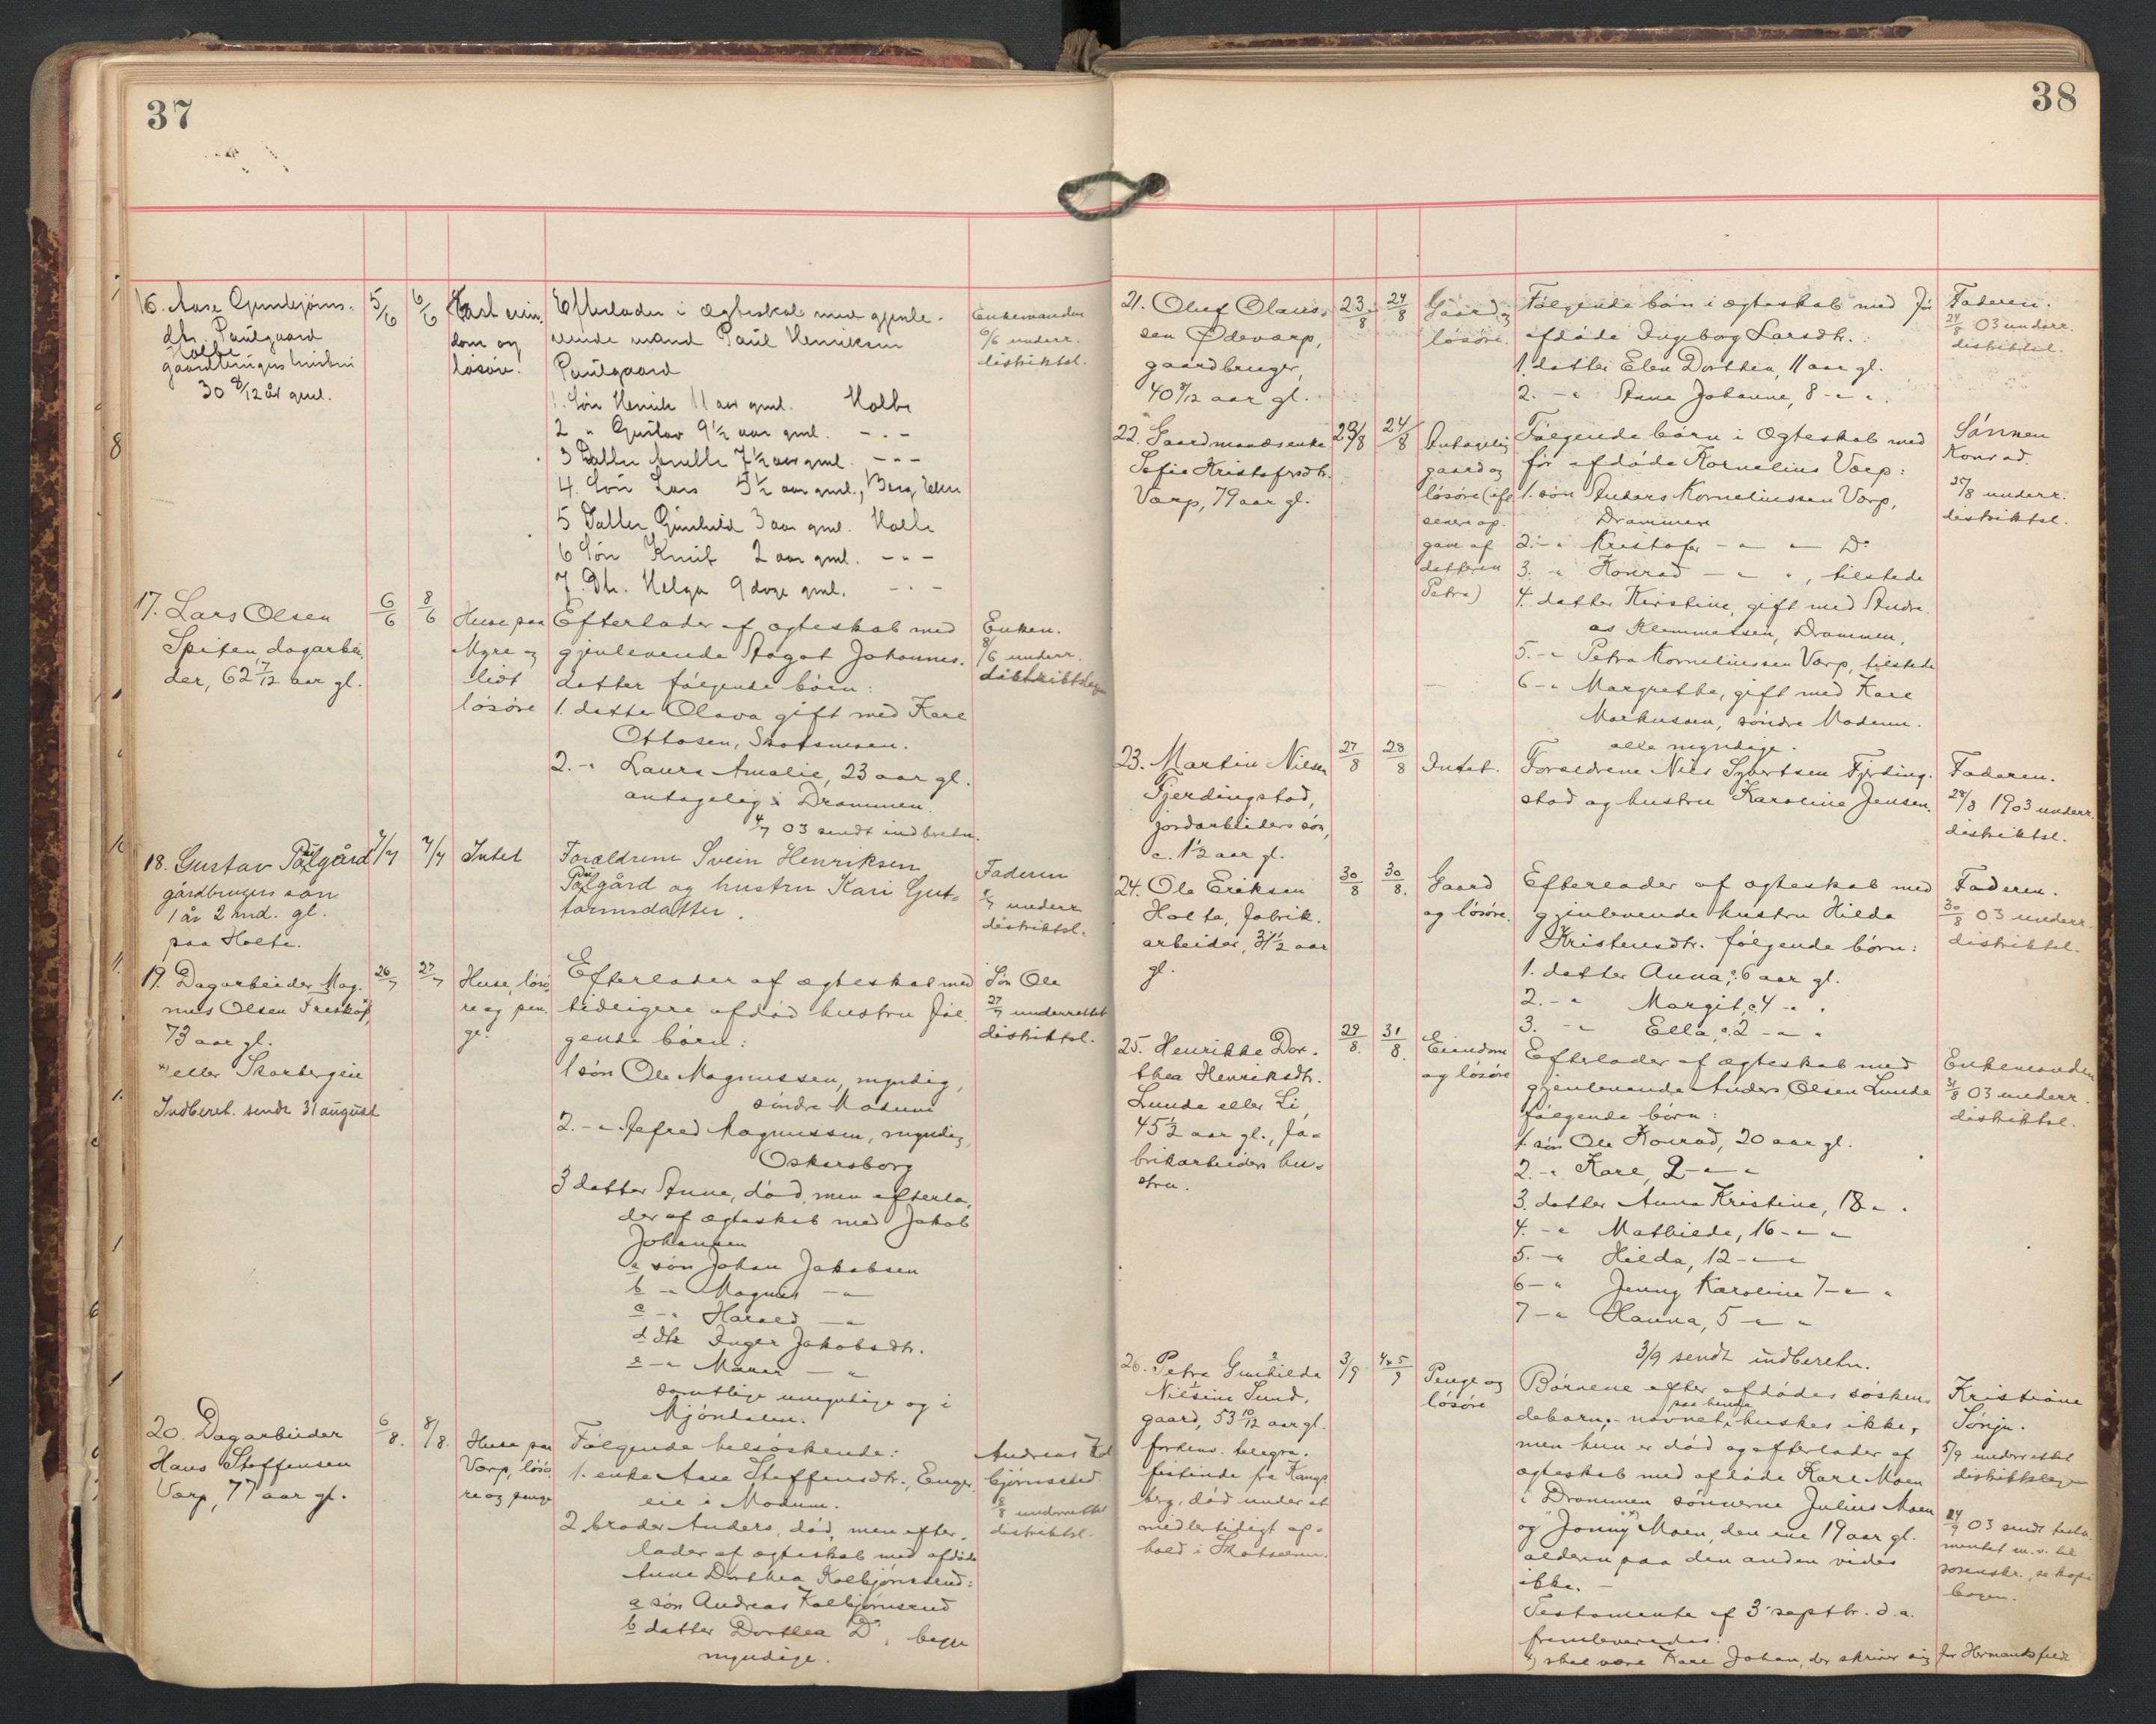 37
16. Aase Gunbjørns-
dtr. Paulgaard
Holte
gaardbrugers hustru
30 8/12 år gml.
5/6
6/6
Fast eien-
dom og
løsøre.
Efterlader i ægteskab med gjenle-
vende mand Paul Henriksen
Paulgaard
1. Søn Henrik 11 aar gml. Holte
2 " Gustav 9 1/2 aar gml. - " -
3 Datter 7 1/2 aar gml. - " -
4. Søn Lars 5 1/2 aar gml.,
5 Datter Gunhild 3 aar gml. Holte
6 Søn Knut 2 aar gml. - " -
7. Dtr. Helga 9 dage gml. - " -
Enkemanden
6/6 underr.
distriktsl.
17. Lars Olsen
Spiten dagarbei-
der, 62 7/12 aar gl.
6/6
8/6
Huse paa
Myre og
lidt
løsøre
Efterlader af ægteskab med
gjenlevende Aagot Johannes-
datter følgende børn:
1. datter Olava gift med Karl
Ottosen, Skotsmoen.
2. - " Laura Amalie, 23 aar gl.
antagelig i Drammen.
4/7 03 sendt indberetn.
Enken.
8/6 underr.
distriktslegen
18. Gustav Pålgård
gårdbrugers søn
1 år 2 md. gl.
paa Holte.
7/7
7/7
Intet
Forældrene Svein Henriksen
Pålgård og hustru Kari Gut-
tormsdatter.
Faderen
underr.
distriktsl.
19. Dagarbeider Mag-
nus Olsen Treskåp,
73 aar gl.
*) eller Skarbergeie
Indberet. sendt 31 august
26/7
27/7
Huse, løsø-
re og pen-
ge.
Efterlader af ægteskab med
tidligere afdød hustru føl-
gende børn:
1 søn Ole Magnussen, myndig,
søndre Modum
2. - " Alfred Magnussen, myndig,
Oskarsborg
3 datter Anna, død, men efterla-
der af ægteskab med Jakob
Johansen
a søn Johan Jakobsen
b - " Magnus - "
c - " Harald - "
d dtr Inger Jakobsdtr.
e - " - "
samtlige umyndige og i
Mjøndalen.
Søn Ole
27/7 underrettet
distriktsl.
20. Dagarbeider
Hans Steffensen
Varp, 77 aar gl.
6/8.
8/8.
Huse paa
Varp, løsø-
re og penge
Følgende helsøskende:
1. enke Aase Steffensdtr., Enger-
eie i Modum.
2 broder Anders, død, men efter-
lader af ægteskab med afdøde
Anne Dorthea Kolbjørnsrud:
a søn Andreas Kolbjørnsrud
b datter Dorthea Do, begge
myndige.
Andreas Kol-
bjørnsrud.
8/8 underrettet
distriktsl.
38
21. Oluf Olaus-
sen Ødevarp,
gaardbruger,
40 8/12 aar gl.
23/8
24/8
Gaard og
løsøre.
Følgende børn i ægteskab med før
afdøde Ingeborg Larsdtr.:
1. datter Elen Dorthea, 11 aar gl.
2. - " Anna Johanne, 8 - " -
Faderen.
24/8 03 underr.
distriktsl.
22. Gaardmandsenke
Sofie Kristofersdtr.
Varp, 79 aar gl.
23/8
24/8
Antagelig
gaard og
løsøre (ifl.
senere op-
gave af
datteren
Petra)
Følgende børn i ægteskab med
før afdøde Kornelius Varp:
1. søn Anders Korneliussen Varp,
Drammen
2. - " Kristofer - " - Do
3. - " Konrad - " - , tilstede
4. datter Kirstine, gift med Andre-
as Klemmetsen, Drammen,
5. - " Petra Korneliussen Varp, tilstede
6 - " Margrethe, gift med Karl
Markussen, søndre Modum.
alle myndige.
Sønnen
Konrad.
25/8 underr.
distriktsl.
23. Martin Nilsen
Fjerdingstad,
jordarbeiders søn,
c. 1 1/2 aar gl.
27/8
28/8
Intet.
Forældrene Nils Syvertsen Fjerding-
stad og hustru Karoline Jensen.
Faderen.
28/8 1903 underr.
distriktsl.
24. Ole Eriksen
Holte, fabrik-
arbeider, 31 1/2 aar
gl.
30/8
30/8.
Gaard
og løsøre.
Efterlader af ægteskab med
gjenlevende hustru Hilda
Kristensdtr. følgende børn:
1. datter Anna, c. 6 aar gl.
2. - " Margit, c. 4 - "
3. - " Ella, c. 2 - " -
Faderen.
30/8 03 underr.
distriktsl.
25. Henrikke Dor-
thea Henriksdtr.
Lunde eller Li,
45 1/2 aar gl., fa-
brikarbeiders hu-
stru.
29/8.
31/8.
Eiendom
og løsøre
Efterlader af ægteskab med
gjenlevende Anders Olsen Lunde
følgende børn:
1. søn Ole Konrad, 20 aar gl.
2. - " Karl, 2 - " -
3. datter Anna Kristine, 18 - "
4. - " Mathilde, 16 - " -
5. - " Hilda, 12 - " -
6 - " Jenny Karoline 7 - " "
7 - " Hanna, 5 - " "
3/9 sendt indberetn.
Enkemanden
31/8 03 underr.
distriktsl.
26. Petra Gunhilda
Nilsine Lund-
gaard, 53 10/12 aar gl.
forhenv. telegra-
fistinde fra Kongs-
berg, død under et
midlertidigt op-
hold i Skotselven.
3/9
4 & 5/9
Penge og
løsøre
Børnene efter afdødes søsken-
debarn, - navnet paa hende huskes ikke,
men hun er død og efterlader af
ægteskab med afdøde Karl Moen
i Drammen sønnerne Julius Moen
og "Jonny" *) Moen, den ene 19 aar gl.
alderen paa den anden vides
ikke. -
Testamente af 3 septbr. d.a.
fremleveredes.
*) skal være Karl Johan, der skriver sig for Hermansfeldt
Kristiane
5/9 underrettet
distriktslegen
14/9 03 sendt testa-
mentet m.v. til
sorenskr., se kopi-
bogen.